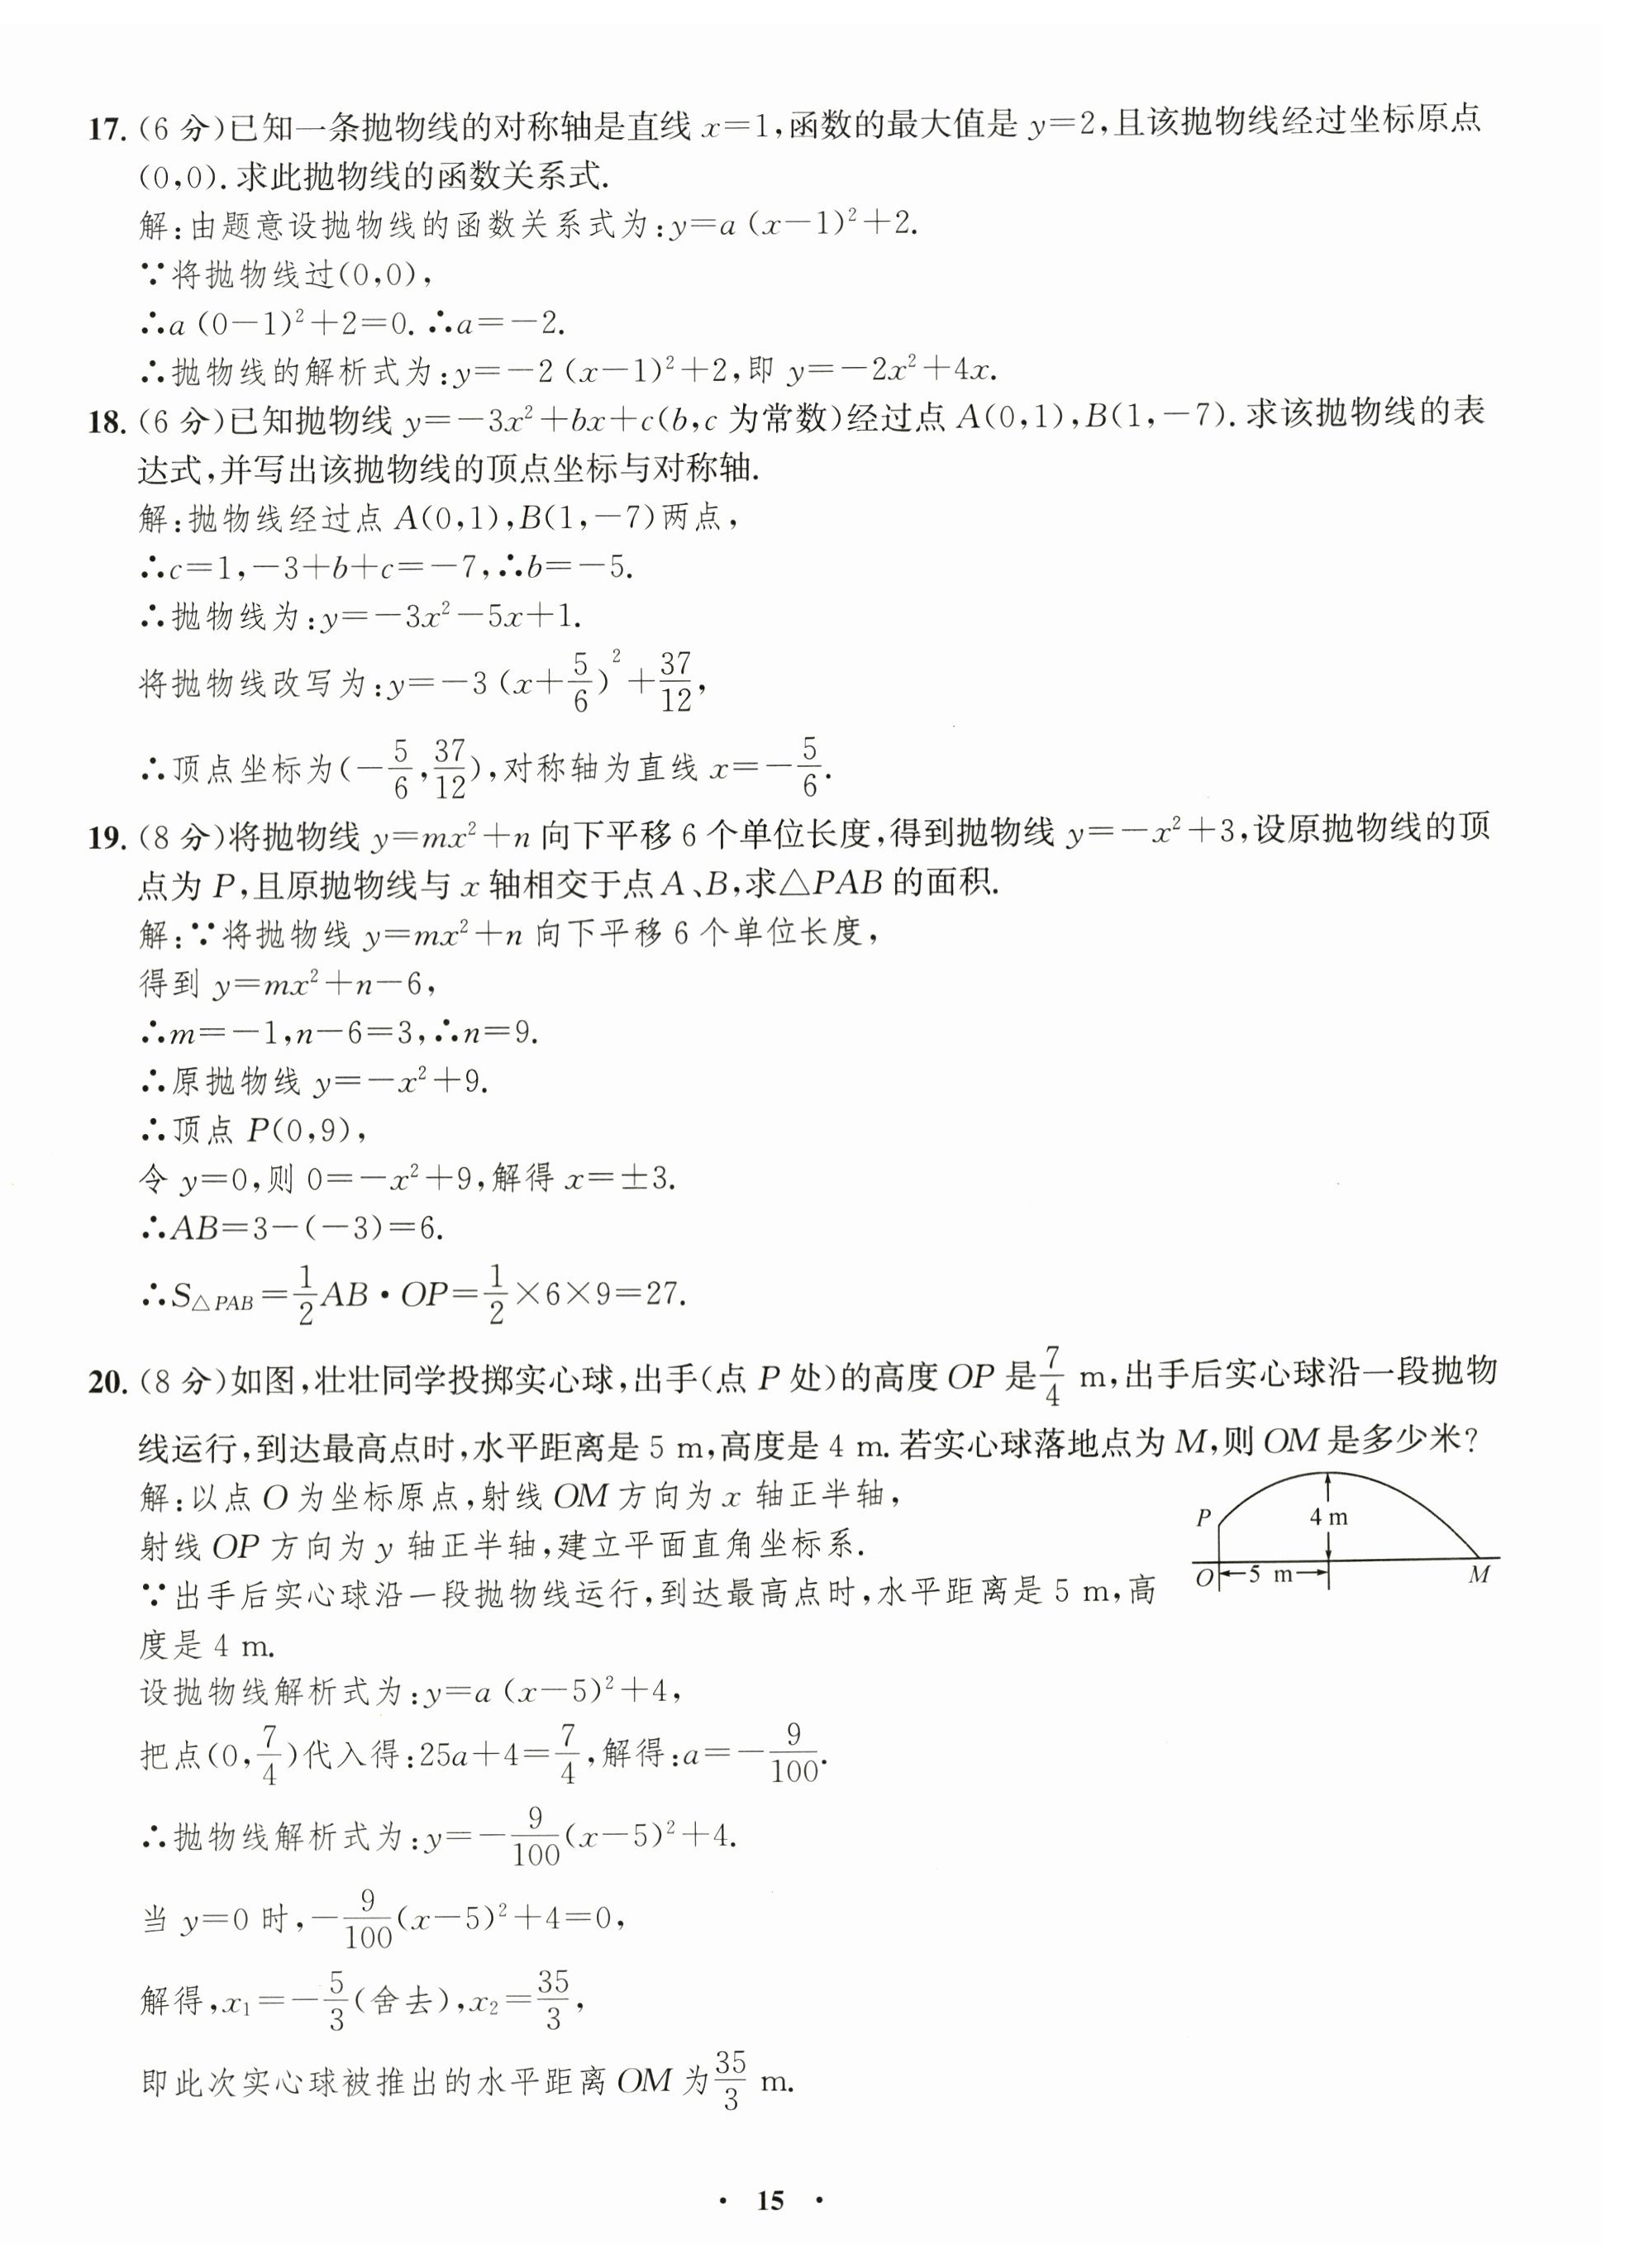 17. (6 分)已知一条抛物线的对称轴是直线 x=1,函数的最大值是 y=2,且该抛物线经过坐标原点
(0,0). 求此抛物线的函数关系式.
解:由题意设抛物线的函数关系式为:y=a (x−1)²+2.
∵将抛物线过(0,0),
∴a (0−1)²+2=0. ∴a=−2.
∴抛物线的解析式为:y=−2 (x−1)²+2,即 y=−2x²+4x.
18. (6 分)已知抛物线 y=−3x²+bx+c(b,c 为常数)经过点 A(0,1),B(1,−7). 求该抛物线的表
达式,并写出该抛物线的顶点坐标与对称轴.
解:抛物线经过点 A(0,1),B(1,−7)两点,
∴c=1,−3+b+c=−7,∴b=−5.
∴抛物线为:y=−3x²−5x+1.
将抛物线改写为:y=−3 (x+5/6)²+37/12,
∴顶点坐标为(−5/6,37/12),对称轴为直线 x=−5/6.
19. (8 分)将抛物线 y=mx²+n 向下平移 6 个单位长度,得到抛物线 y=−x²+3,设原抛物线的顶
点为 P,且原抛物线与 x 轴相交于点 A、B,求△PAB 的面积.
解:∵将抛物线 y=mx²+n 向下平移 6 个单位长度,
得到 y=mx²+n−6,
∴m=−1,n−6=3,∴n=9.
∴原抛物线 y=−x²+9.
∴顶点 P(0,9),
令 y=0,则 0=−x²+9,解得 x=±3.
∴AB=3−(−3)=6.
∴S△PAB=1/2AB·OP=1/2×6×9=27.
20. (8 分)如图,壮壮同学投掷实心球,出手(点 P 处)的高度 OP 是7/4 m,出手后实心球沿一段抛物
线运行,到达最高点时,水平距离是 5 m,高度是 4 m. 若实心球落地点为 M,则 OM 是多少米?
解:以点 O 为坐标原点,射线 OM 方向为 x 轴正半轴,
射线 OP 方向为 y 轴正半轴,建立平面直角坐标系.
∵出手后实心球沿一段抛物线运行,到达最高点时,水平距离是 5 m,高
度是 4 m.
P
4 m
O
5 m
M
设抛物线解析式为:y=a (x−5)²+4,
把点(0,7/4)代入得:25a+4=7/4,解得:a=−9/100.
∴抛物线解析式为:y=−9/100(x−5)²+4.
当 y=0 时,−9/100(x−5)²+4=0,
解得,x₁=−5/3(舍去),x₂=35/3,
即此次实心球被推出的水平距离 OM 为35/3 m.
· 15 ·